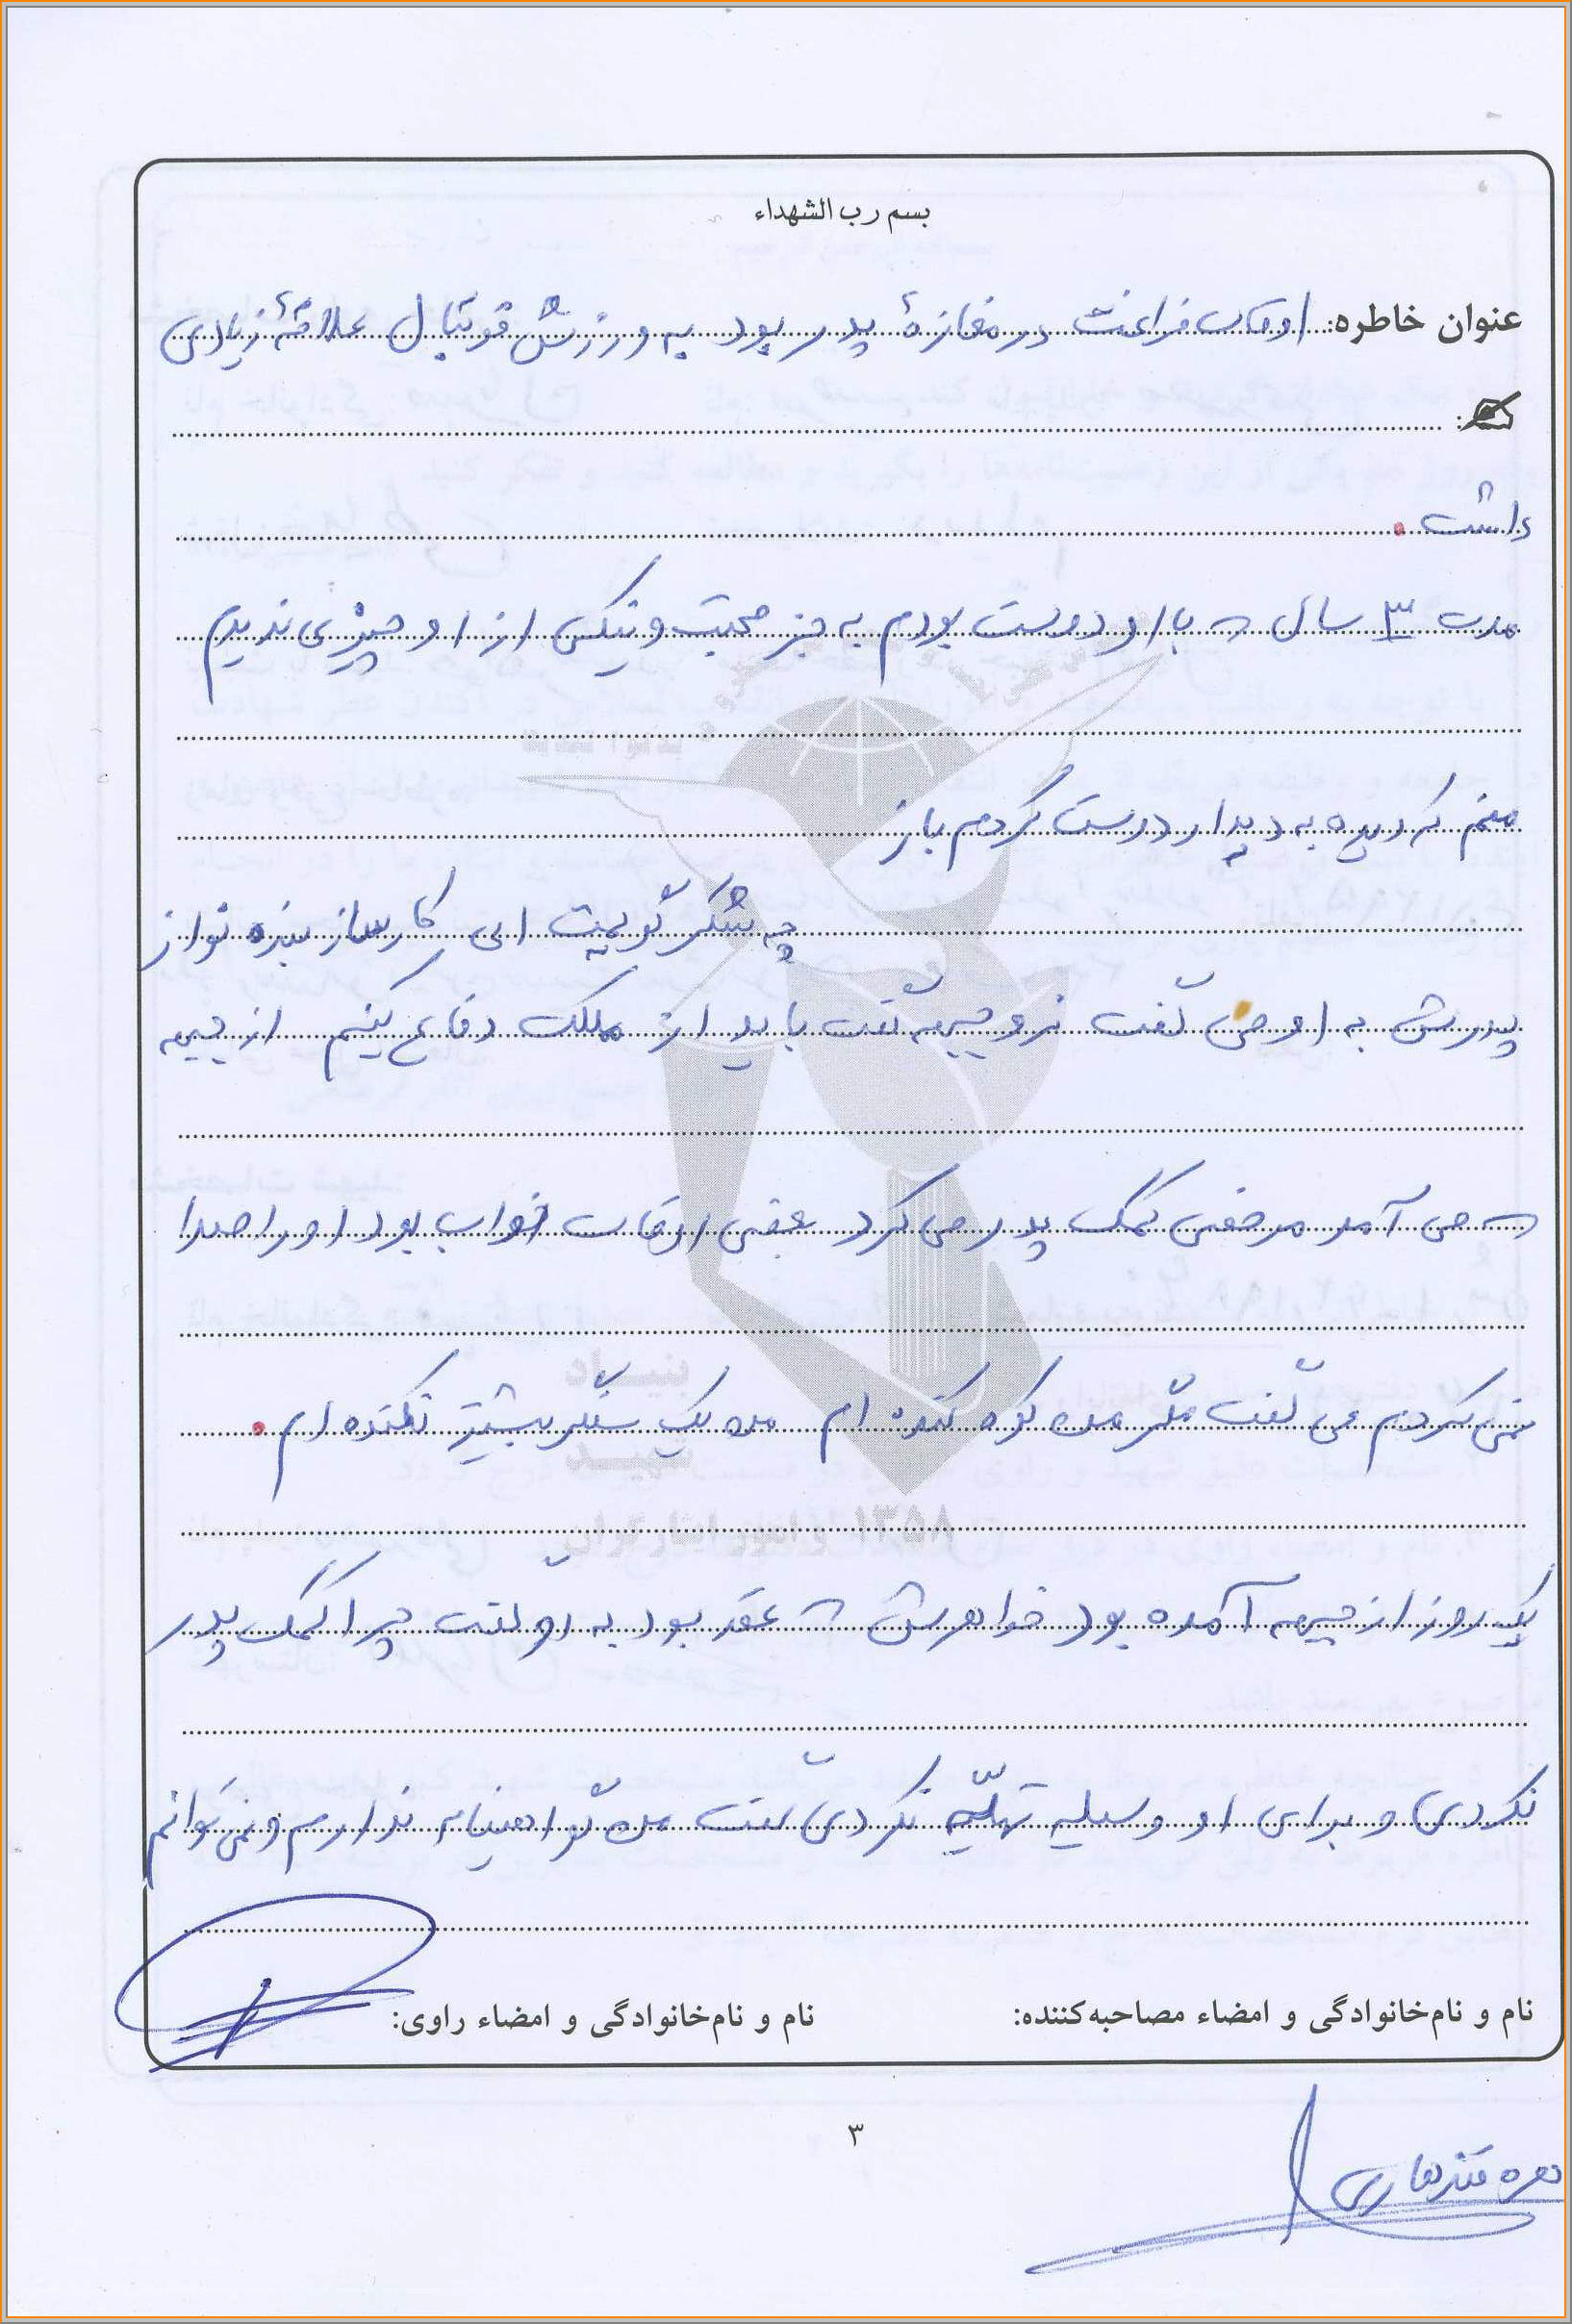 بسم رب الشهداء
عنوان خاطره: اوقات فراغت در مغازهٔ پدر بود به ورزش فوتبال علاقهٔ زیادی
داشت.
مدت ۳ سال که با او دوست بودم به جز محبت و نیکی از او چیزی ندیدم
منم که دیده به دیدار دوست کردم باز
چه شکر گویمت ای کارساز بنده نواز
پدرش به او می گفت نرو جبهه گفت باید از مملکت دفاع کنیم از جبهه
که می آمد مرخصی کمک پدر می کرد بعضی اوقات خواب بود او را صدا
نمی کردم می گفت مگر من کوه کنده ام من یک سنگر بیشتر نکنده ام.
یک روز از جبهه آمده بود خواهرش که عقد بود به او گفت چرا کمک پدر
نکردی و برای او وسیله تهیّه نکردی گفت من تو اهنمانه ندارم و نمی توانم
نام و نام‌خانوادگی و امضاء مصاحبه‌کننده:
نام و نام‌خانوادگی و امضاء راوی:
۳
قندهاری
بنیاد
شهید
۱۳۵۸ و امور ایثارگران